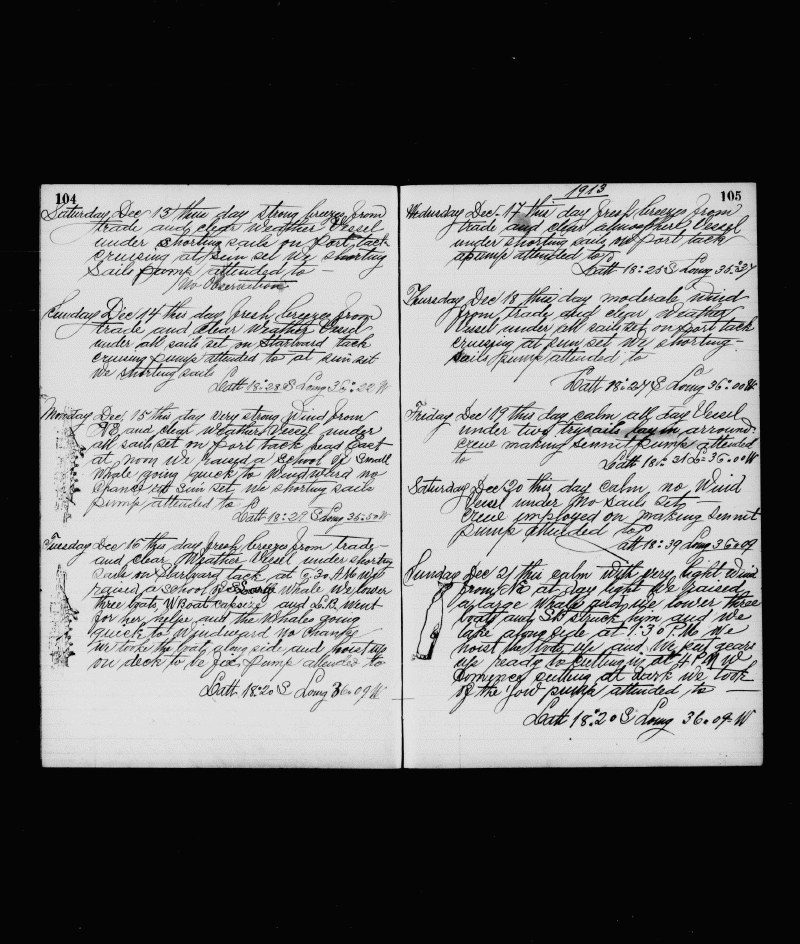 104
Saturday Dec 13 this day strong breezes from
trade and clear Weather Vessel
under shorting sails on port tack
cruising at sun set we shorting
Sails pump attended to
No Observation
Sunday Dec 14 this day fresh breezes from
trade and clear Weather Vessel
under all sails set on Starboard tack
cruising pump attended to at sun set
we shorting sails
Latt 18:28 S Long 36:22 W
Monday Dec 15 this day very strong Wind from
NE and clear Weather Vessel under
all sails set on port tack head East
at noon we raised a school of small
whale going quick to Windward no
chance at Sun Set we shorting sails
pump attended to
Latt 18:29 S Long 35:50 W
Tuesday Dec 16 this day fresh breezes from trade
and clear Weather Vessel under shorting
sails on Starboard tack at 6.30 AM we
raised a school of Whale We lower
three boats W Boat and L.B went
for her helper and the Whales going
quick to Windward No chance
we took the boats along side and hoist up
on deck to be fix pump attended to
Latt 18:20 S Long 36:09 W
1913
105
Wednesday Dec. 17 this day fresh breezes from
trade and clear atmosphere Vessel
under shorting sails on port tack
pump attended to
Latt 18:25 S Long 35:37
Thursday Dec 18 this day moderate wind
from trade and clear Weather
Vessel under all sails set on port tack
cruising at sun set we shorting
sails pump attended to
Latt 18:27 S Long 36:00 W
Friday Dec 19 this day calm all day Vessel
under two trysails lay in arround
Crew making sennit pump attended
to Latt 18:31 L: 36:00 W
Saturday Dec 20 this day calm no Wind
Vessel under No Sails Set
Crew employed on making sennit
pump attended to
Latt 18:39 Long 36:09
Sunday Dec 21 this calm with very light Wind
from NE at day light We raised
a large Whale quick we lower three
boats and SB struck him and we
take along side at 1:30 P.M We
hoist the boats up and We kept gears
up ready to cutting in at 4 PM We
Commence cutting at dark we took
of the Jow pump attended to
Latt 18:20 S Long 36:09 W